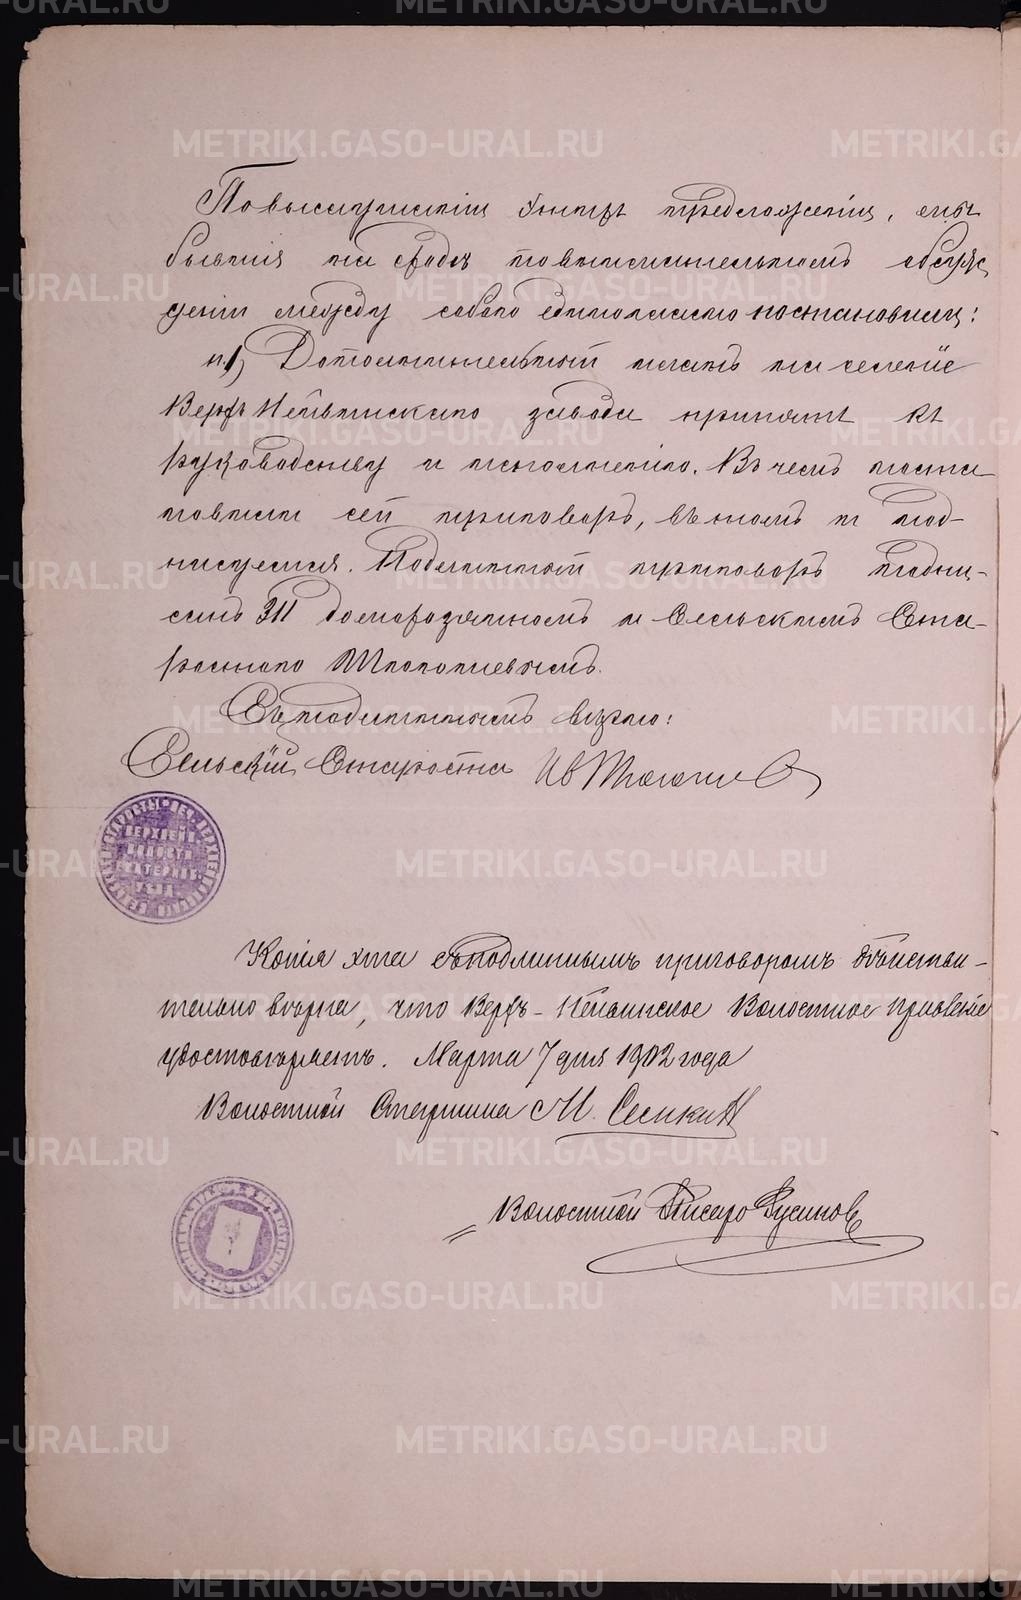 По выслушаніи этихъ предложеній, мы
бывшія на сходѣ по внимательномъ обсуж
деніи между собою единогласно постановили:
п 1, Дополнительный планъ на селеніе
Верхъ Нейвинскаго завода принять къ
руководству и исполненію. Въ чемъ поста
новили сей приговоръ, въ томъ и под-
писуемся. Подлинный приговоръ подпи-
санъ 311 домохозяиномъ и Сельскимъ Ста-
ростою
Съ подлиннымъ вѣрно:
Сельскій Староста Ив
Копія эта съ подлиннымъ приговоромъ дѣйстви-
тельно вѣрна, что Верхъ-Нейвинское Волостное Правленіе
удостовѣряетъ. Марта 7 дня 1902 года
Волостной Старшина М.
Волостной Писарь Русинов
METRIKI.GASO-URAL.RU